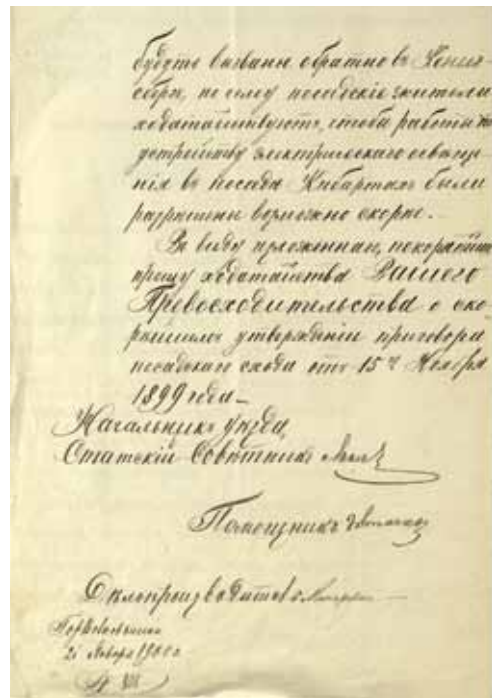 будутъ вызваны обратно въ Кениг-
сбергъ, по сему посадскіе жители
ходатайствуютъ, чтобы работы по
устройству электрическаго освѣще-
нія въ посадѣ Кибартахъ были
разрѣшены возможно скорѣе.
Въ виду изложеннаго, покорнѣйше
прошу ходатайства Вашего
Превосходительства о ско-
рѣйшемъ утвержденіи приговора
посадскаго схода отъ 15го Ноября
1899 года
Начальникъ уѣзда,
Статскій Совѣтникъ
Помощникъ
Дѣлопроизводитель
Января 1900 г.